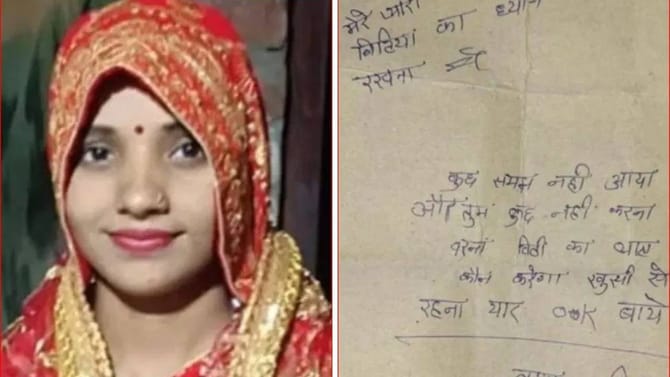 मेरे प्यारी
बिटिया का ध्यान
रखना
कुछ समझ नही आया
और तुम कुछ नही करना
वरना बिटी का
कौन करेगा खुसी से
रहना यार ook बाये